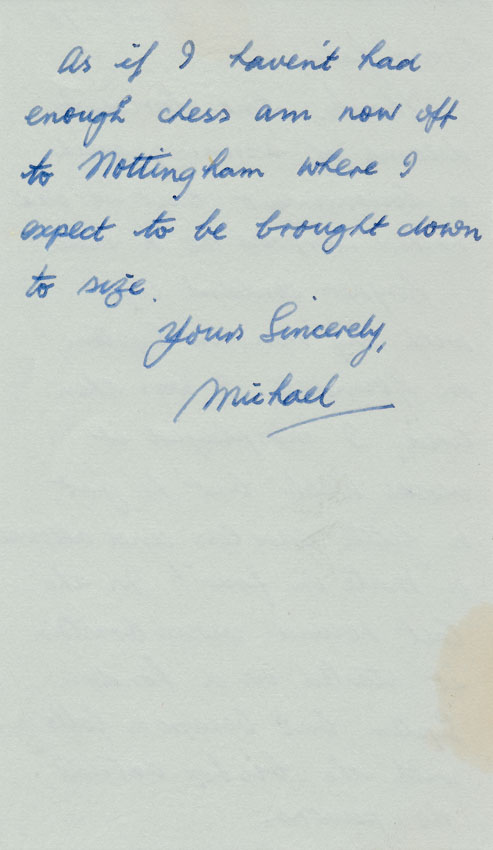 As if I haven't had
enough chess am now off
to Nottingham where I
expect to be brought down
to size.
Yours Sincerely,
Michael